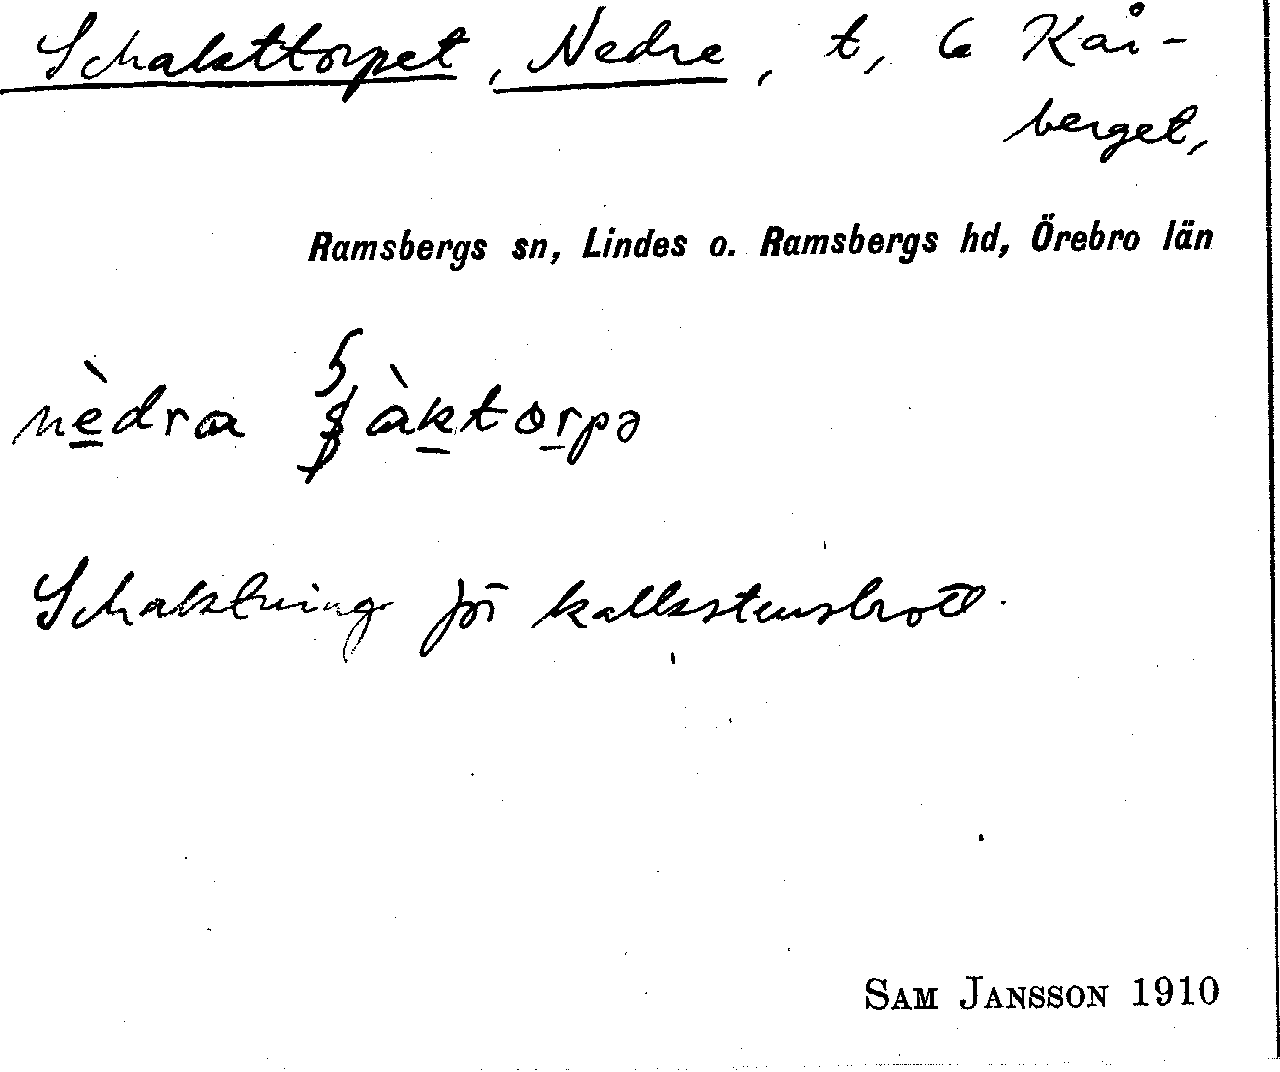 Schakttorpet, Nedre, t, 6 Kår-
berget,
Ramsbergs sn, Lindes o. Ramsbergs hd, Örebro län
nèdra ʃàktorpə
Schaktning för kalkstensbrott.
SAM JANSSON 1910